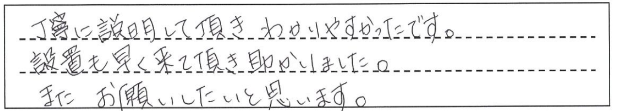 丁寧に説明して頂きわかりやすかったです。
設置も早く来て頂き助かりました。
また お願いしたいと思います。